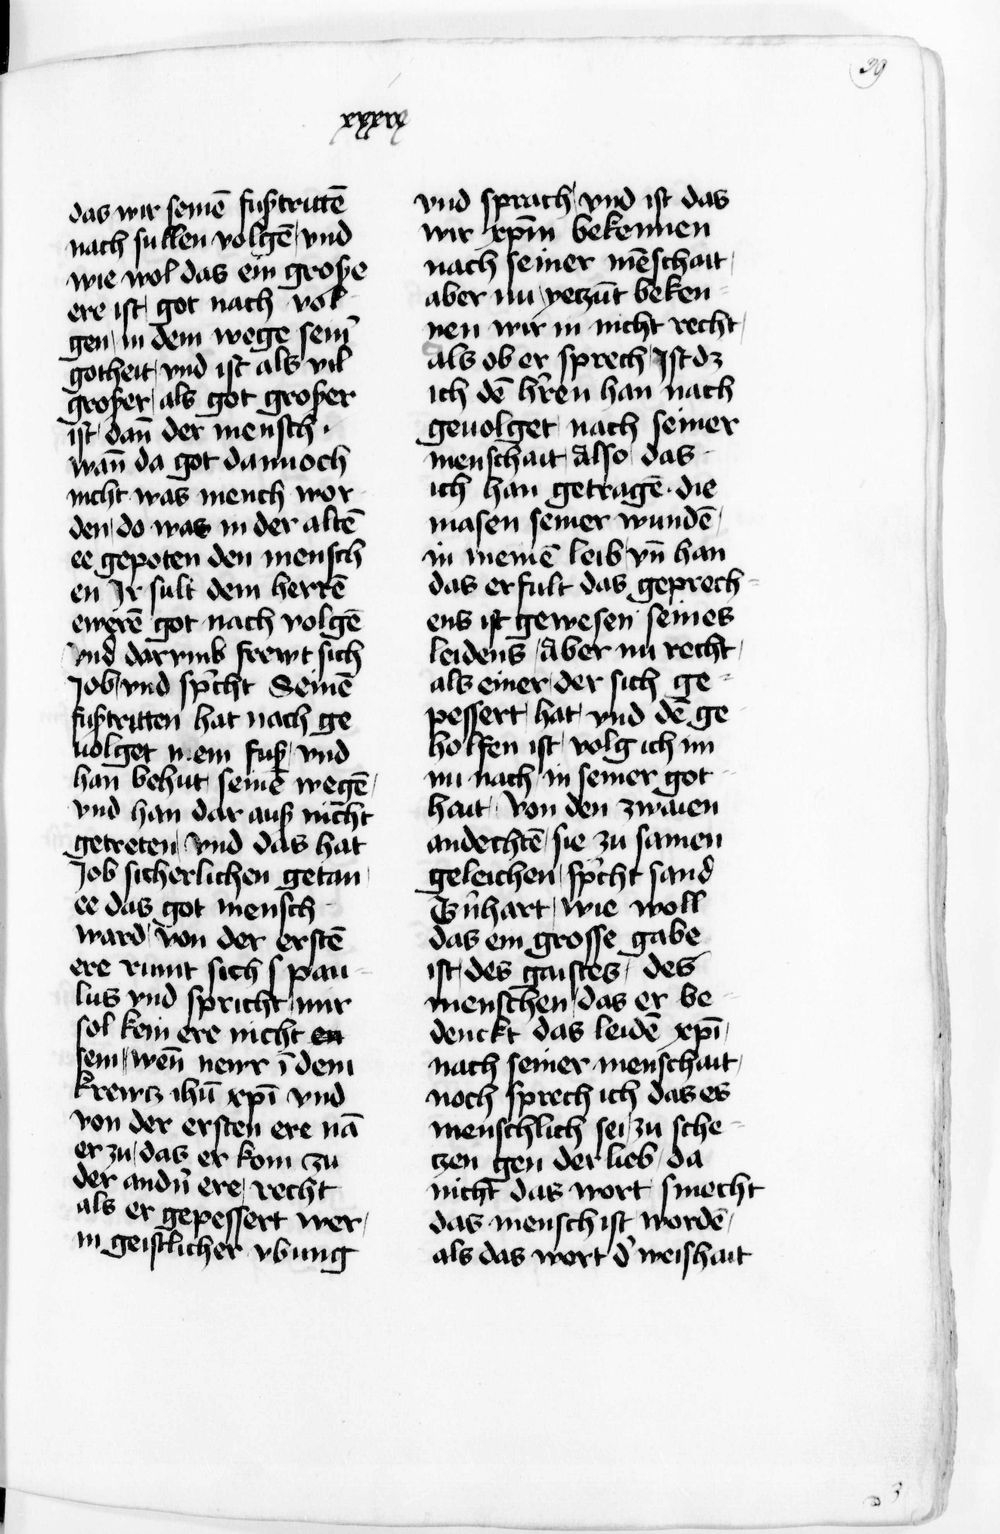 39
xxxix
das wir seinē fußtrittē
nach sullen volgē / vnd
wie wol das ein große
ere ist / got nach vol-
gen / in dem wege sein̾
gotheit / vnd ist als vil
großer / als got großer
ist / dan̄ der mensch ·
wan̄ da got dannoch
nicht was mench wor-
den / do was in der altē
ee gepoten den mensch
en Ir sult dem herrē
ewerē got nach volgē
vnd darvmb frewt sich
Job / vnd sp̾cht Seinē
fußtritten hat nach ge
uolget mein fuß / vnd
han behut seinē wegē /
vnd han dar auß nicht
getreten / vnd das hat
Job sicherlichen getan /
ee das got mensch
ward / von der erstē
ere rumt sich s pau-
lus vnd spricht / mir
sol kein ere nicht en
sein / wen̄ newr ī dem
krewcz ihū xpī vnd
von der ersten ere nā
er zu / das er kom zu
der andn̾ ere / recht
als er gepessert wer /
in geistlicher vbung
vnd sprach / vnd ist das
wir xp̄m bekennen
nach seiner mēschait /
aber nu / yetzūt beken-
nen wir in nicht recht /
als ob er sprech / Ist dz
ich dē h̾ren han nach
geuolget nach seiner
menschait / Also das
ich han getragē · die
masen seiner wundē /
in meinē leib / vn̄ han
das erfult das geprech-
ens ist gewesen seines
leidens / Aber nu recht /
als einer / der sich ge-
pessert hat / vnd dē ge
holfen ist / volg ich im
nu nach / in seiner got-
hait / von den zwaien
andechtē / sie zu samen
geleichen / sp̾cht sand
B̾nhart / wie woll
das ein grosse gabe
ist / des gaistes / des
menschen / das er be-
denckt das leidē xpī /
nach seiner menschait /
noch sprech ich das es
menschlich sei / zu sche-
czen gen der lieb / da
nicht das wort smecht
das mensch ist wordē /
als das wort d̾ weishait
3